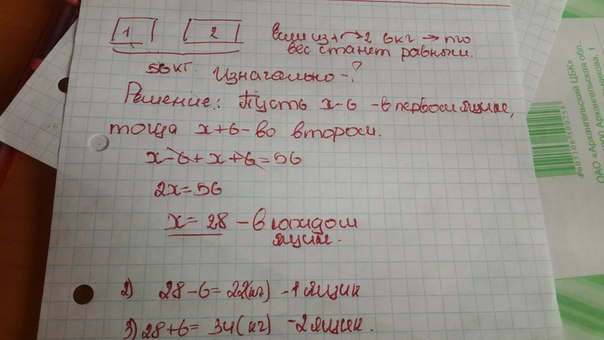 1 2 если из 1 → 2 6 кг → то
вес станет равным.
56 кг. Изначально - ?
Решение: Пусть х-6 - в первом ящике,
тогда х+6 - во втором.
х-6+х+6=56
2х=56
х = 28 - в каждом
ящике.
2) 28-6= 22(кг) - 1 ящик
3) 28+6= 34(кг) - 2 ящик.
ОАО «Архангельский ЦБК»